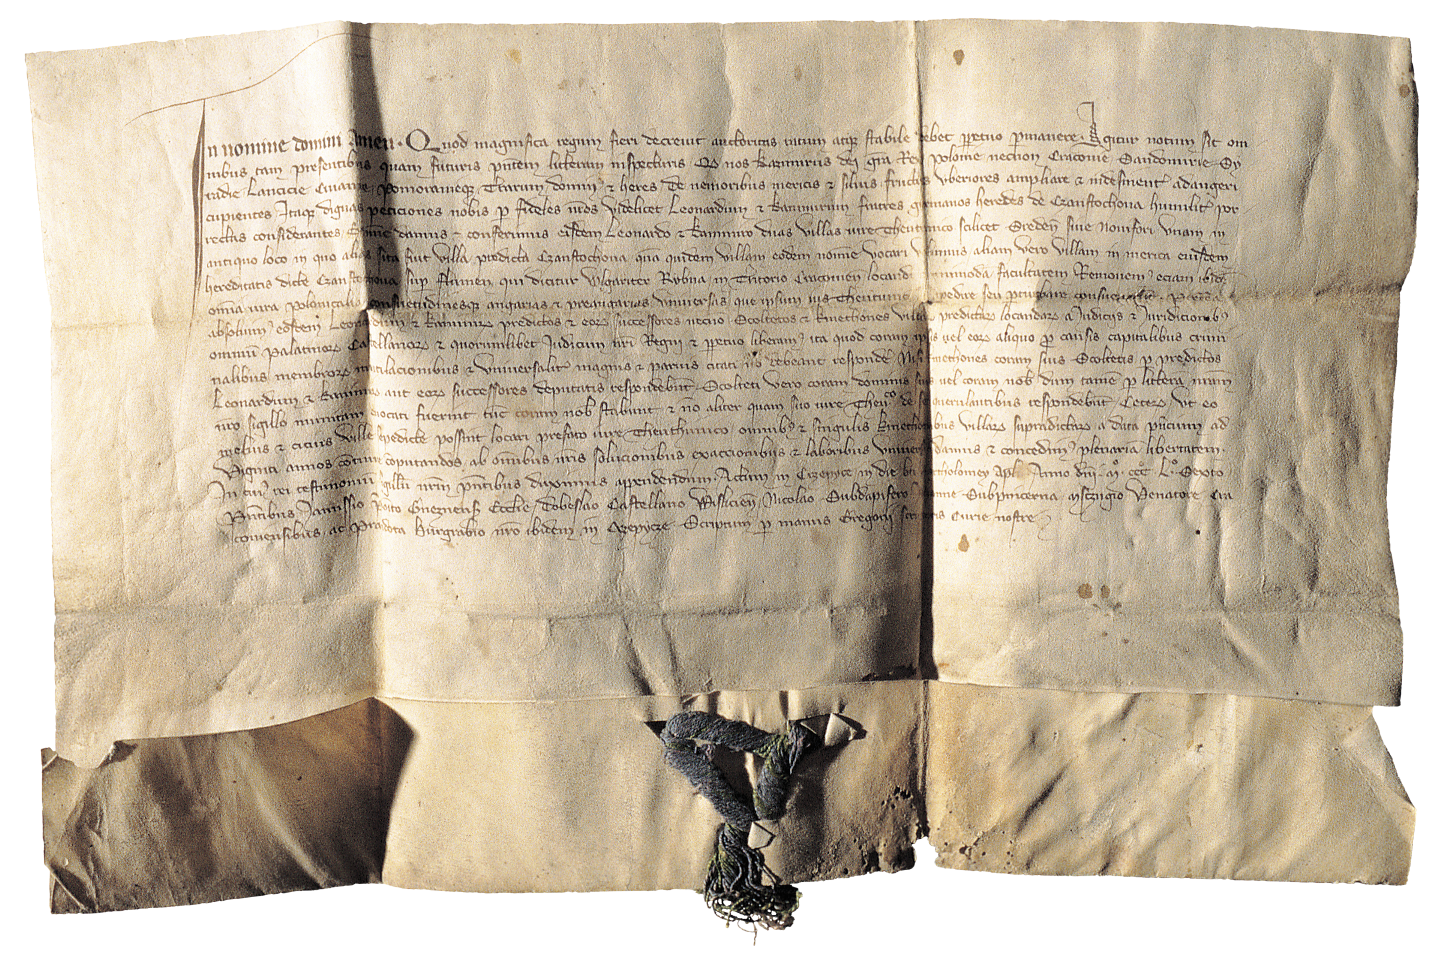 In nomine domini Amen. Quod magnifica regum fieri decrevit auctoritas ratum atq stabile debet ppetuo pmanere. Igitur notum sit om
nibus tam presentibus quam futuris pntem litteram inspecturis Qd nos Kazimirus dei gra Rex polonie necnon Cracouie Sandomirie Sy
radie Lancicie Cuiauie pomoranieq Terrarum domin9 et heres de nemoribus mericis et siluis fructus vberiores ampliare et indesinent adaugeri
cupientes Itaq dignas peticiones nobis p fideles nros videlicet Leonardum et Kazimirum fratres germanos heredes de Czanstochoua humilit por
rectas considerantes damus et conferimus eisdem Leonardo et Kazimiro duas villas iure Theutunico scilicet Sreden siue Nouifori vnam in
antiquo loco in quo alias sita fuit villa predicta Czanstochoua qua quidem villam eodem nomine vocari volumus aliam vero villam in merica eiusdem
hereditatis dicte Czanstochoua sup flumen qui dicitur vlgariter Rybna in Tritorio Cracouien locand facultatem Remouem9 eciam ibidem
omia iura polonicalia consuetudinesq angarias et preangarias vniuersas que ipsum ius Theutunic pedire seu pturbare consueuerint
absoluim9 eosdem Leonardum et Kazimirum predictos et eorum successores necnon Scoltetos et kmethones villarum predictarum locandarum a Judiciis et Juridicionib9
omnium palatinorum Castellanorum et quorumlibet Judicum nri Regni et ppetuo liberam9 ita quod coram ipsis uel eorum aliquo p causis capitalibus crimi
nalibus membrorum mutilacionibus et vniuersalit magnis et paruis citati respondere Nisi kmethones coram suis Scoltetis p predictos
Leonardum et Kazimirum aut eorum successores deputatis respondebunt Scolteti vero coram dominis suis uel coram nob dum tamen p littera nram
nro sigillo munitam euocati fuerint tunc coram nob stabunt et no aliter quam suo iure Theutco de se querulantibus respondebunt Ceterum vt eo
melius et cicius ville predicte possint locari prefato iure Theuthunico omnib9 et singulis kmethonibus villarum supradictarum a data pncium ad
viginti annos continue computandos ab omibus nris solucionibus exaccionibus et laboribus vniuersis damus et concedim9 plenariam libertatem
In cui9 rei testimonium sigillum nrm pntibus duximus appendendum Actum in Crzepyce in die bti Bartholomey apli Anno dni mo ccco Lo Sexto
pntibus Janussio pposito Gneznensis Ecclie Dobeslao Castellano Wisliciensi Nicolao Subdapifero Subpincerna Venatore Cra
couiensibus ac Burgrabio nro ibidem in Crzepycze Scriptum p manus Gregorii Curie nostre